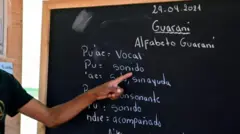 29.04.2021
Guarani
Alfabeto Guarani
Pujae = Vocal
Pu = sonido
sin ayuda
Pu
onsonante
ndie = acompañado